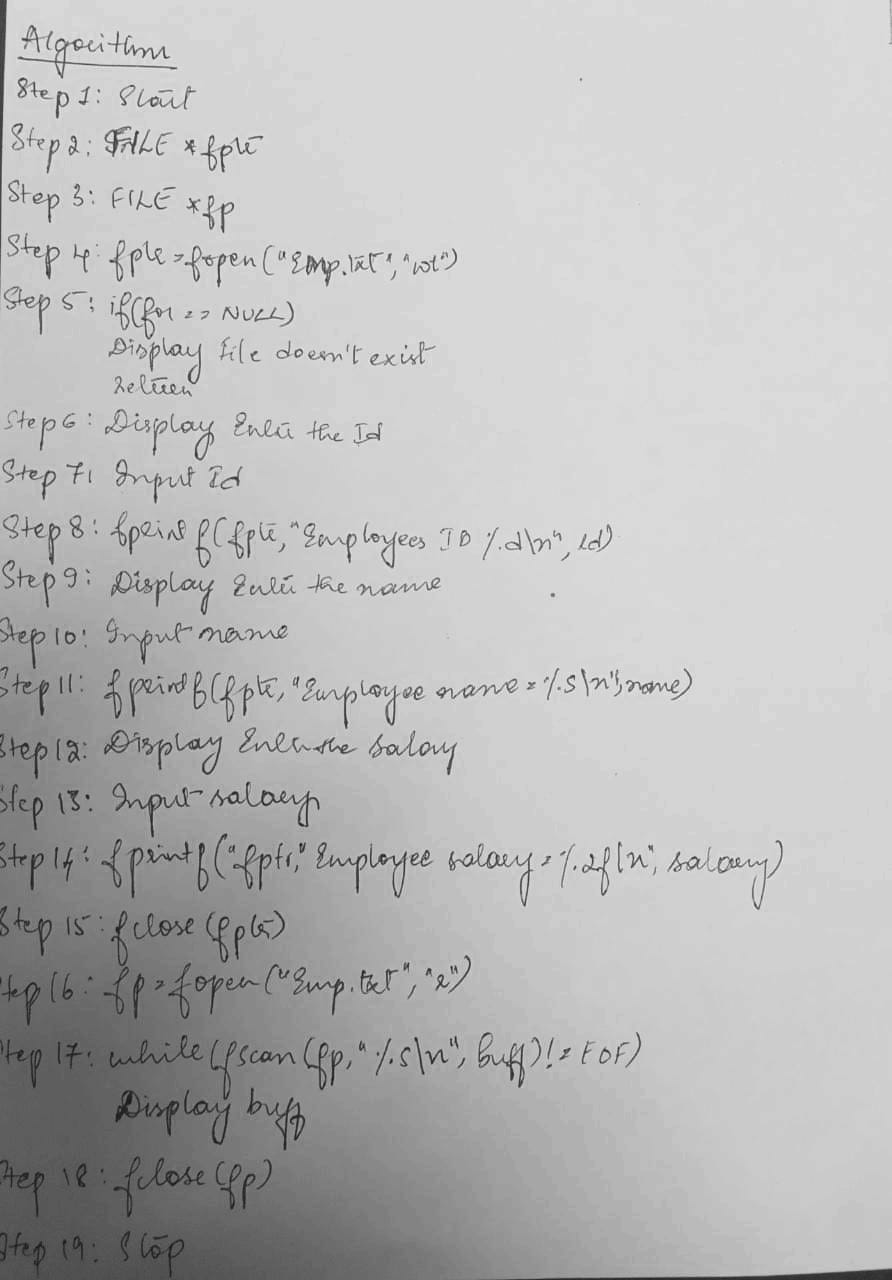 Algorithm
Step 1: Start
Step 2: FILE *fptr
Step 3: FILE *fp
Step 4: fptr = fopen("Emp.txt", "wt")
Step 5: if(fptr == NULL)
Display file doesn't exist
Return
Step 6: Display Enter the Id
Step 7: Input Id
Step 8: fprintf(fptr, "Employees ID %d\n", id)
Step 9: Display Enter the name
Step 10: Input name
Step 11: fprintf(fptr, "Employee name = %s\n", name)
Step 12: Display Enter the salary
Step 13: Input salary
Step 14: fprintf("fptr," Employee salary = %.2f\n", salary)
Step 15: fclose(fptr)
Step 16: fp = fopen("Emp.txt", "r")
Step 17: while(fscan(fp, "%s\n", buff) != EOF)
Display buff
Step 18: fclose(fp)
Step 19: Stop